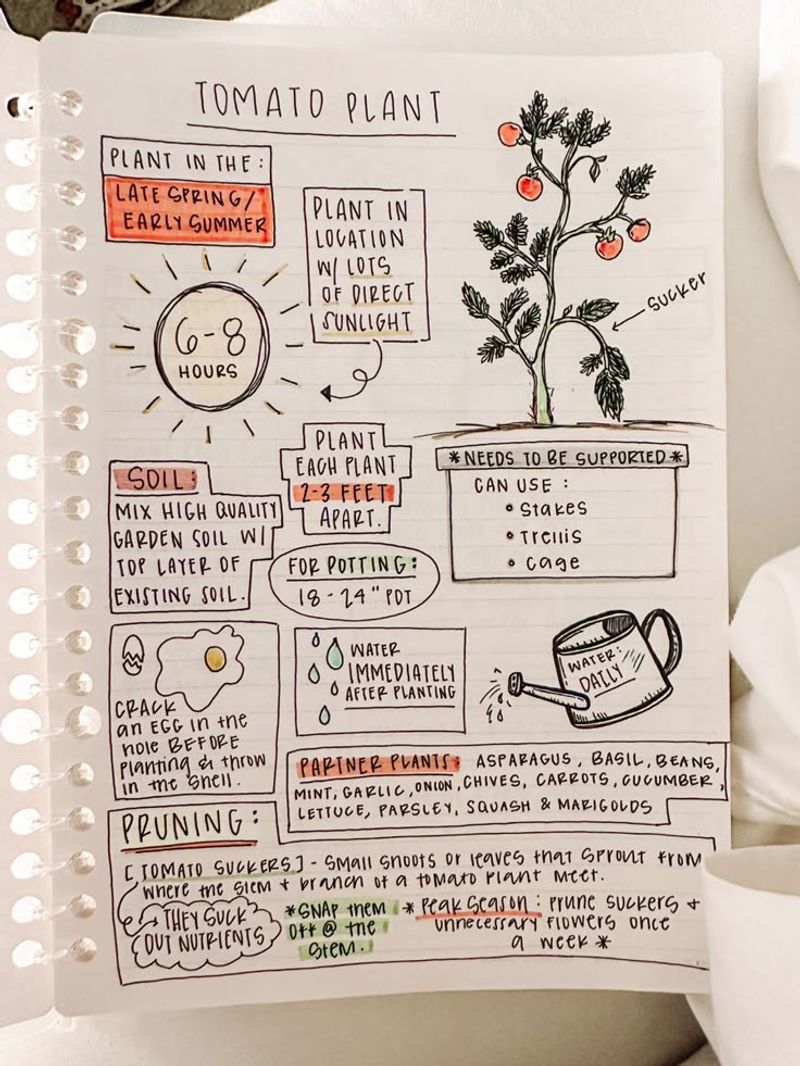 TOMATO PLANT
PLANT IN THE:
LATE SPRING/
EARLY SUMMER
PLANT IN
LOCATION
W/ LOTS
OF DIRECT
SUNLIGHT
6-8
HOURS
SUCKER
SOIL:
MIX HIGH QUALITY
GARDEN SOIL W/
TOP LAYER OF
EXISTING SOIL.
PLANT
EACH PLANT
2-3 FEET
APART.
FOR POTTING:
18-24" POT
*NEEDS TO BE SUPPORTED*
CAN USE:
• Stakes
• Trellis
• Cage
CRACK
an EGG in the
hole BEFORE
planting & throw
in the shell.
WATER
IMMEDIATELY
AFTER PLANTING
WATER:
DAILY
PARTNER PLANTS: ASPARAGUS, BASIL, BEANS,
MINT, GARLIC, ONION, CHIVES, CARROTS, CUCUMBER,
LETTUCE, PARSLEY, SQUASH & MARIGOLDS
PRUNING:
[TOMATO SUCKERS] - Small shoots or leaves that sprout from
where the stem + branch of a tomato plant meet.
THEY SUCK
OUT NUTRIENTS
*SNAP them
off @ the
stem.
* Peak Season: prune suckers +
unnecessary flowers once
a week *